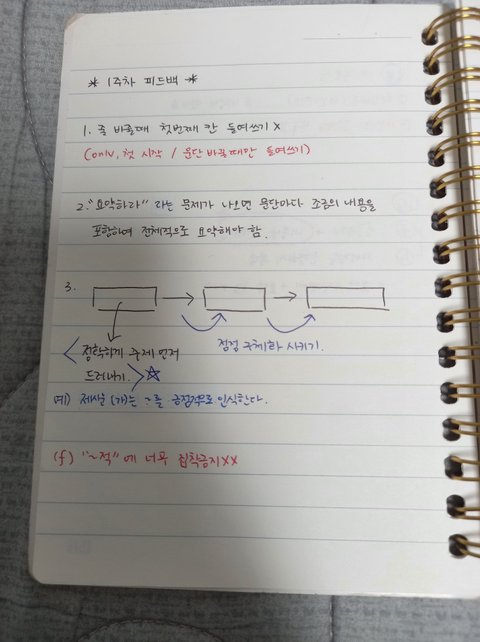 * 1주차 피드백 *
1. 줄 바꿀때 첫번째 칸 들여쓰기 X
(only, 첫 시작 / 문단 바꿀때만 들여쓰기)
2. "요약하라" 라는 문제가 나오면 문단마다 조금의 내용을
포함하여 전체적으로 요약해야 함.
3.
<정확하게 주제 먼저
드러내기.>☆
점점 구체화 시키기.
예) 제시문 (가)는 ~를 긍정적으로 인식한다.
(f) "~적"에 너무 집착금지XX